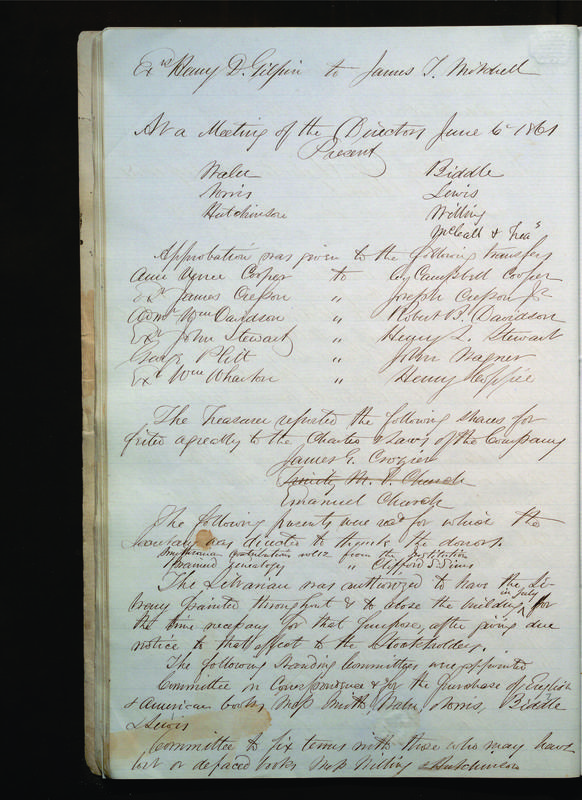 Exrs Henry D. Gilpin to James T. Mitchell
At a Meeting of the Directors June 6 1861
Present
Waln Biddle
Norris Lewis
Hutchinson Willing
McCall & Treasr
Approbation was given to the following transfers
Ann Cooper to Campbell Cooper
Exr James Cresson " Joseph Cresson Jr
Admr Wm Davidson " Robert B. Davidson
Exr John Stewart " Henry L. Stewart
George Platt " John Wagner
Exr Wm Wharton " Henry Coppée
The Treasurer reported the following shares for
feited agreably to the Charter & Laws of the Company
James G. Crozier
Trinity M. P. Church
Emanuel Church
The following presents were recd for which the
Secretary was directed to thank the donors.
Smithsonian Contributions vol 12 from the Institution
genealogy " Clifford S. Sims
The Librarian was authorized to have the Li-
brary painted throughout & to close the building in July for
the time necessary for that purpose, after giving due
notice to that effect to the Stockholders.
The following standing Committees were appointed
Committee on Correspondence & for the purchase of English
& American books Mess Smith, Waln, Norris, Biddle
& Lewis
Committee to fix terms with those who may have
lost or defaced books Mess Willing & Hutchinson